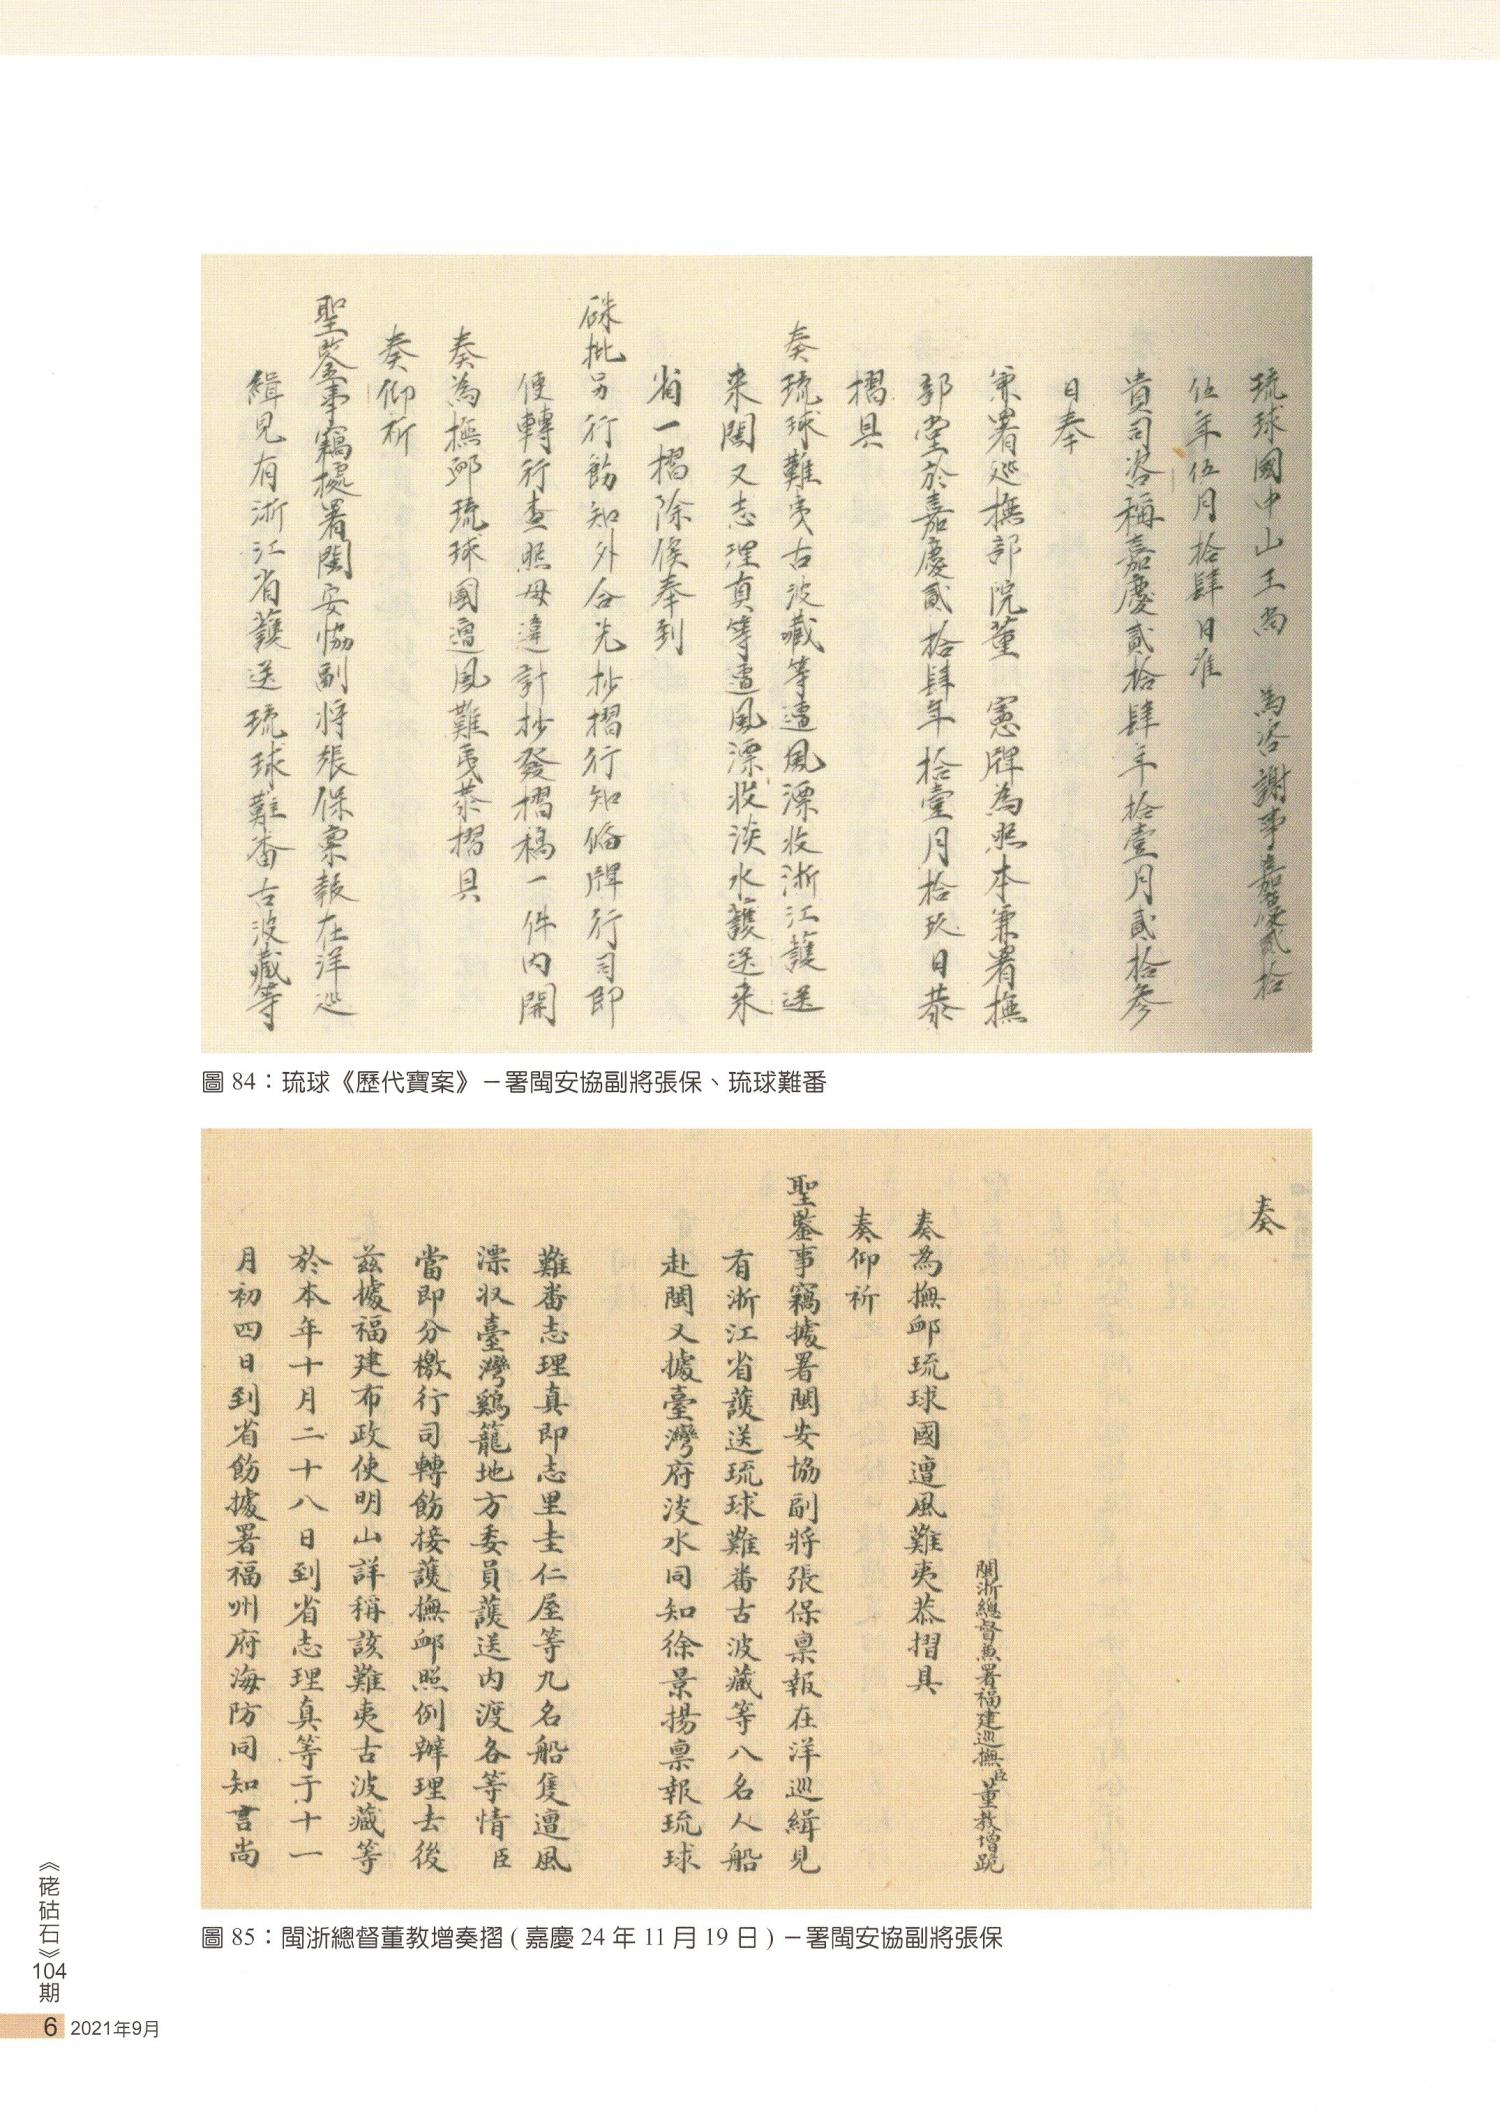 琉球國中山王尚　為咨謝事嘉慶貳拾
伍年伍月拾肆日准
貴司咨稱嘉慶貳拾肆年拾壹月貳拾參
日奉
兼署巡撫部院董　憲牌為照本兼署撫
部堂於嘉慶貳拾肆年拾壹月拾玖日恭
摺具
奏琉球難夷古波藏等遭風漂收浙江護送
來閩又志理真等遭風漂收淡水護送來
省一摺除俟奉到
硃批另行飭知外合先抄摺行知俻牌行司即
便轉行查照毋違計抄發摺稿一件內開
奏為撫卹琉球國遭風難夷恭摺具
奏仰祈
聖鑒事竊據署閩安協副將張保稟報在洋巡
緝見有浙江省護送琉球難番古波藏等
圖 84：琉球《歷代寶案》－署閩安協副將張保、琉球難番
奏
閩浙總督兼署福建巡撫臣董教增跪
奏為撫卹琉球國遭風難夷恭摺具
奏仰祈
聖鑒事竊據署閩安協副將張保稟報在洋巡緝見
有浙江省護送琉球難番古波藏等八名人船
赴閩又據臺灣府淡水同知徐景揚稟報琉球
難番志理真即志里圭仁屋等九名船隻遭風
漂收臺灣鷄籠地方委員護送內渡各等情臣
當即分檄行司轉飭接護撫卹照例辦理去後
茲據福建布政使明山詳稱該難夷古波藏等
於本年十月二十八日到省志理真等于十一
月初四日到省飭據署福州府海防同知言尚
圖 85：閩浙總督董教增奏摺 ( 嘉慶 24 年 11 月 19 日 ) －署閩安協副將張保
《硓𥑮石》104期
6 2021年9月